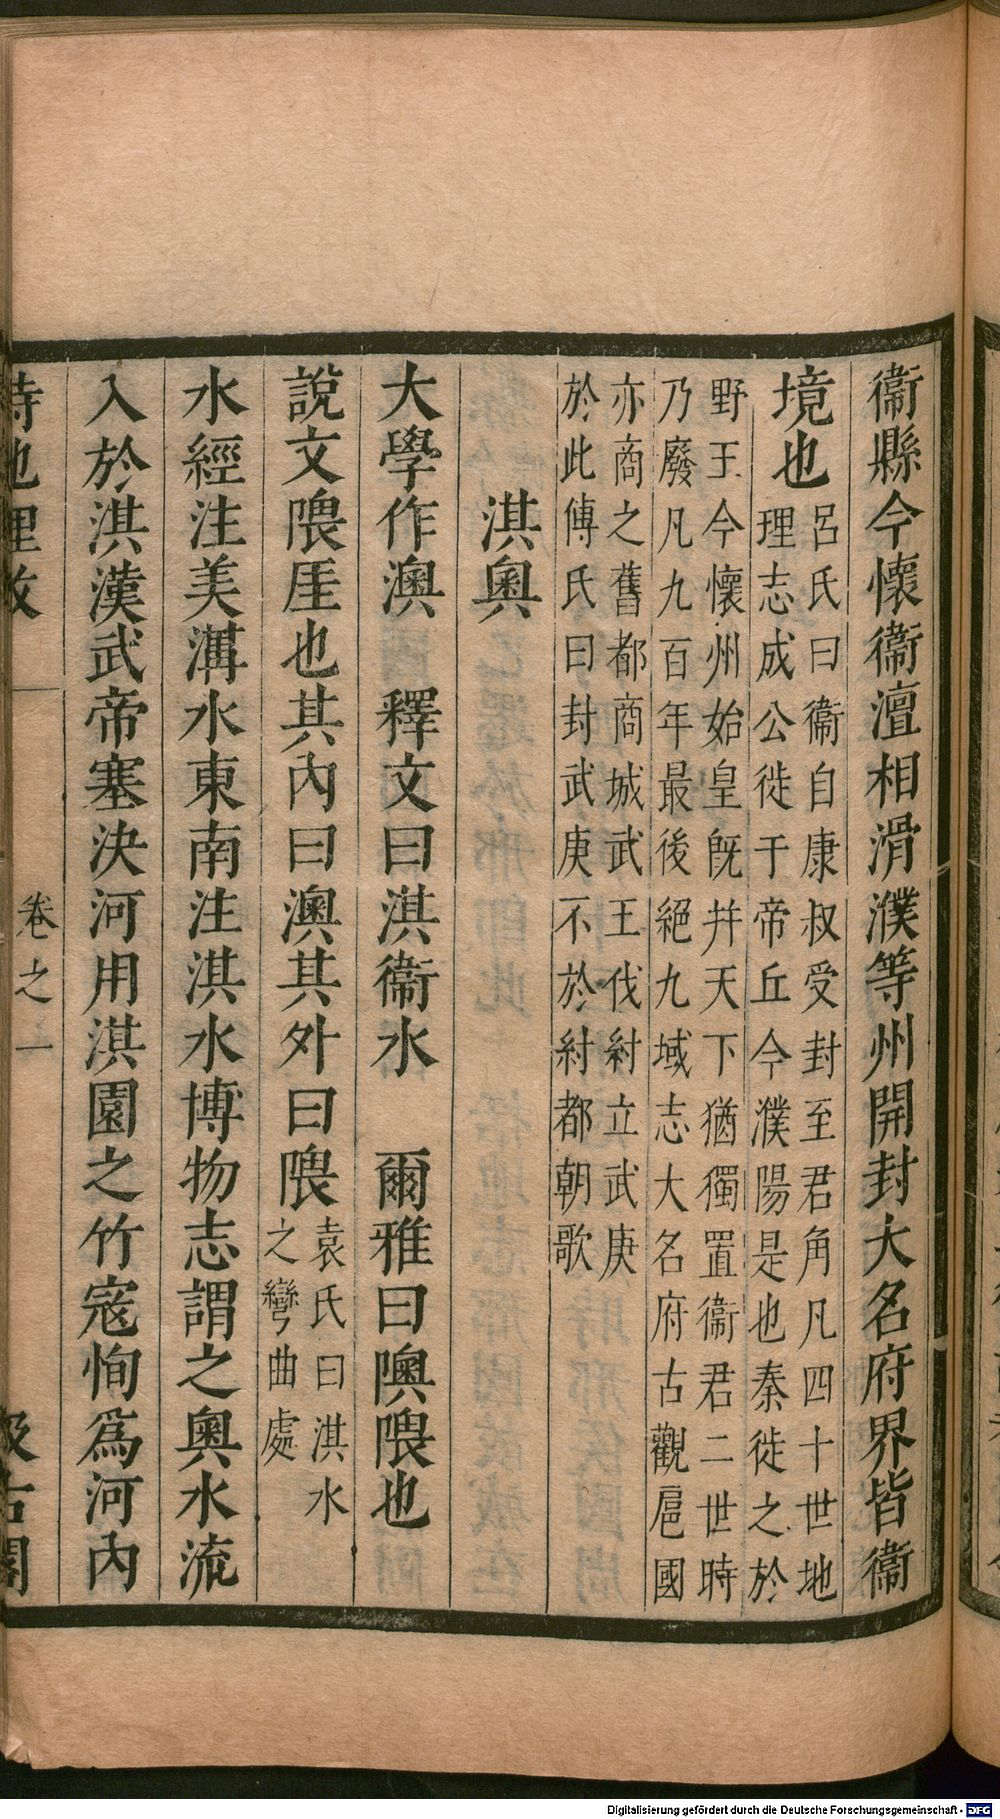 衞縣今懷衞澶相滑濮等州開封大名府界皆衞
境也
呂氏曰衞自康叔受封至君角凡四十世地
理志成公徙于帝丘今濮陽是也秦徙之於
野王今懷州始皇旣并天下猶獨置衞君二世時
乃廢凡九百年最後絕九域志大名府古觀扈國
亦商之舊都商城武王伐紂立武庚
於此傅氏曰封武庚不於紂都朝歌
淇奧
大學作澳　釋文曰淇衞水　爾雅曰隩隈也
說文隈厓也其內曰澳其外曰隈
袁氏曰淇水
之彎曲處
水經注美溝水東南注淇水博物志謂之奧水流
入於淇漢武帝塞決河用淇園之竹寇恂爲河內
詩地理攷　卷之一　汲古閣
Digitalisierung gefördert durch die Deutsche Forschungsgemeinschaft - DFG